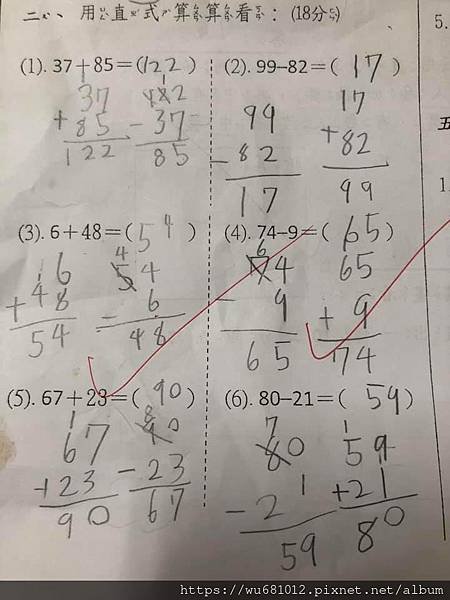 二、用直式算算看：(18分)
(1). 37+85=(122)
37
+85
122
122
-37
85
(2). 99-82=( 17 )
99
-82
17
17
+82
99
(3). 6+48=( 54 )
6
+48
54
54
-6
48
(4). 74-9=( 65 )
74
-9
65
65
+9
74
(5). 67+23=( 90 )
67
+23
90
90
-23
67
(6). 80-21=( 59 )
80
-21
59
59
+21
80
5.
五
1
https://wu681012.pixnet.net/album